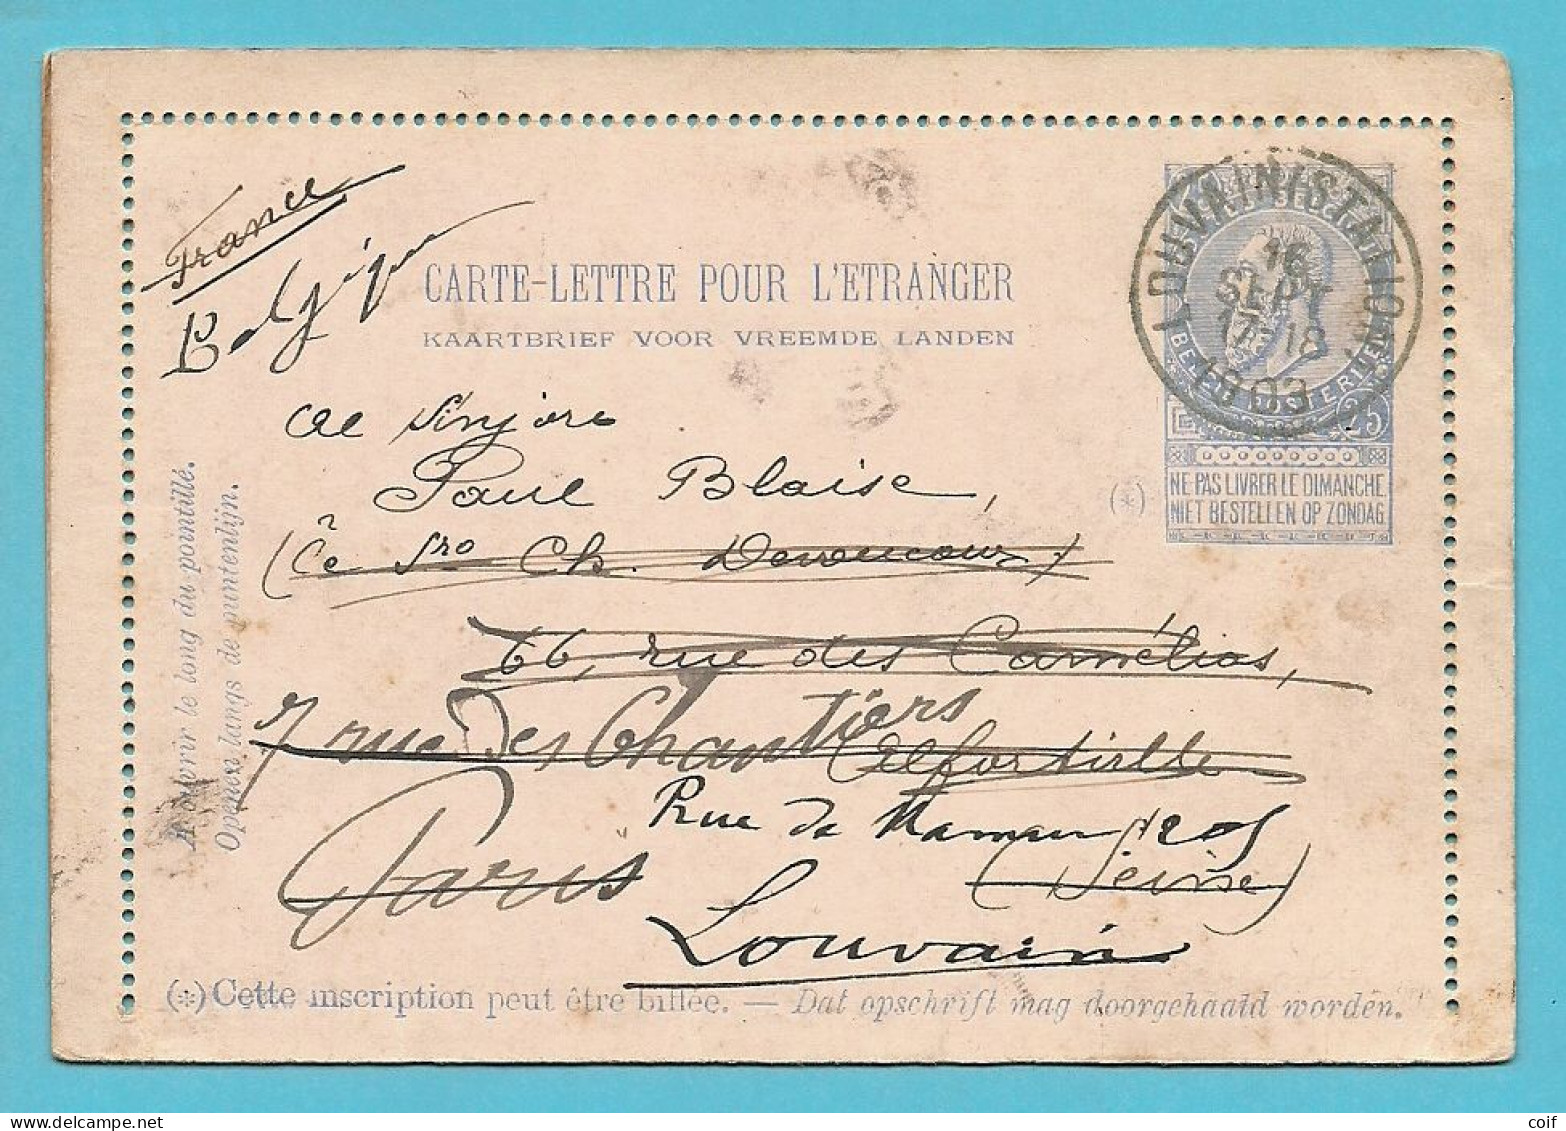 France
Belgique
CARTE-LETTRE POUR L'ETRANGER
KAARTBRIEF VOOR VREEMDE LANDEN
LOUVAIN(STATION)
16
SEPT
17-18
1903
25
(*)
NE PAS LIVRER LE DIMANCHE.
NIET BESTELLEN OP ZONDAG.
al Sinjoro
Paul Blaise,
(Ĉe Sro Ch.
66, rue des Camélias,
7 rue des Chantiers
Alfortville
Rue de Namur No 205
Paris
(Seine)
Louvain
A ouvrir le long du pointillé.
Openen langs de puntenlijn.
(*) Cette inscription peut être biffée. — Dat opschrift mag doorgehaald worden.
delcampe.net
coif